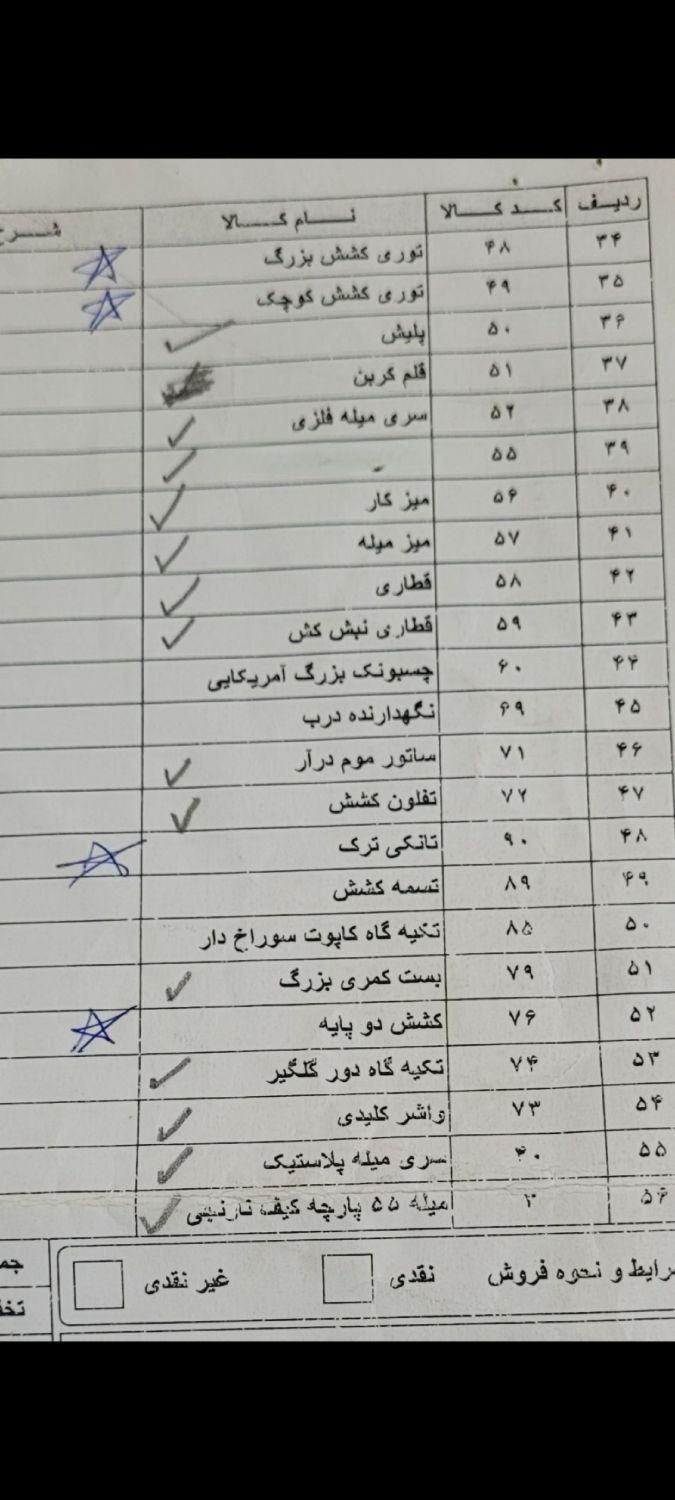 ردیـف کـــد کـــالا نـــام کـــالا شـــرح
۳۴ ۴۸ توری کشش بزرگ
۳۵ ۴۹ توری کشش کوچک
۳۶ ۵۰ پلیش
۳۷ ۵۱ قلم کربن
۳۸ ۵۲ سری میله فلزی
۳۹ ۵۵
۴۰ ۵۶ میز کار
۴۱ ۵۷ میز میله
۴۲ ۵۸ قطاری
۴۳ ۵۹ قطاری نبش کش
۴۴ ۶۰ چسبونک بزرگ آمریکایی
۴۵ ۶۹ نگهدارنده درب
۴۶ ۷۱ ساتور موم درآر
۴۷ ۷۲ تفلون کشش
۴۸ ۹۰ تانکی ترک
۴۹ ۸۹ تسمه کشش
۵۰ ۸۵ تکیه گاه کاپوت سوراخ دار
۵۱ ۷۹ بست کمری بزرگ
۵۲ ۷۶ کشش دو پایه
۵۳ ۷۴ تکیه گاه دور گلگیر
۵۴ ۷۳ واشر کلیدی
۵۵ ۴۰ سری میله پلاستیک
۵۶ ۲ میله ۵۵ پارچه کیف نارنجی
رایط و نحوه فروش نقدی غیر نقدی جم
تخف